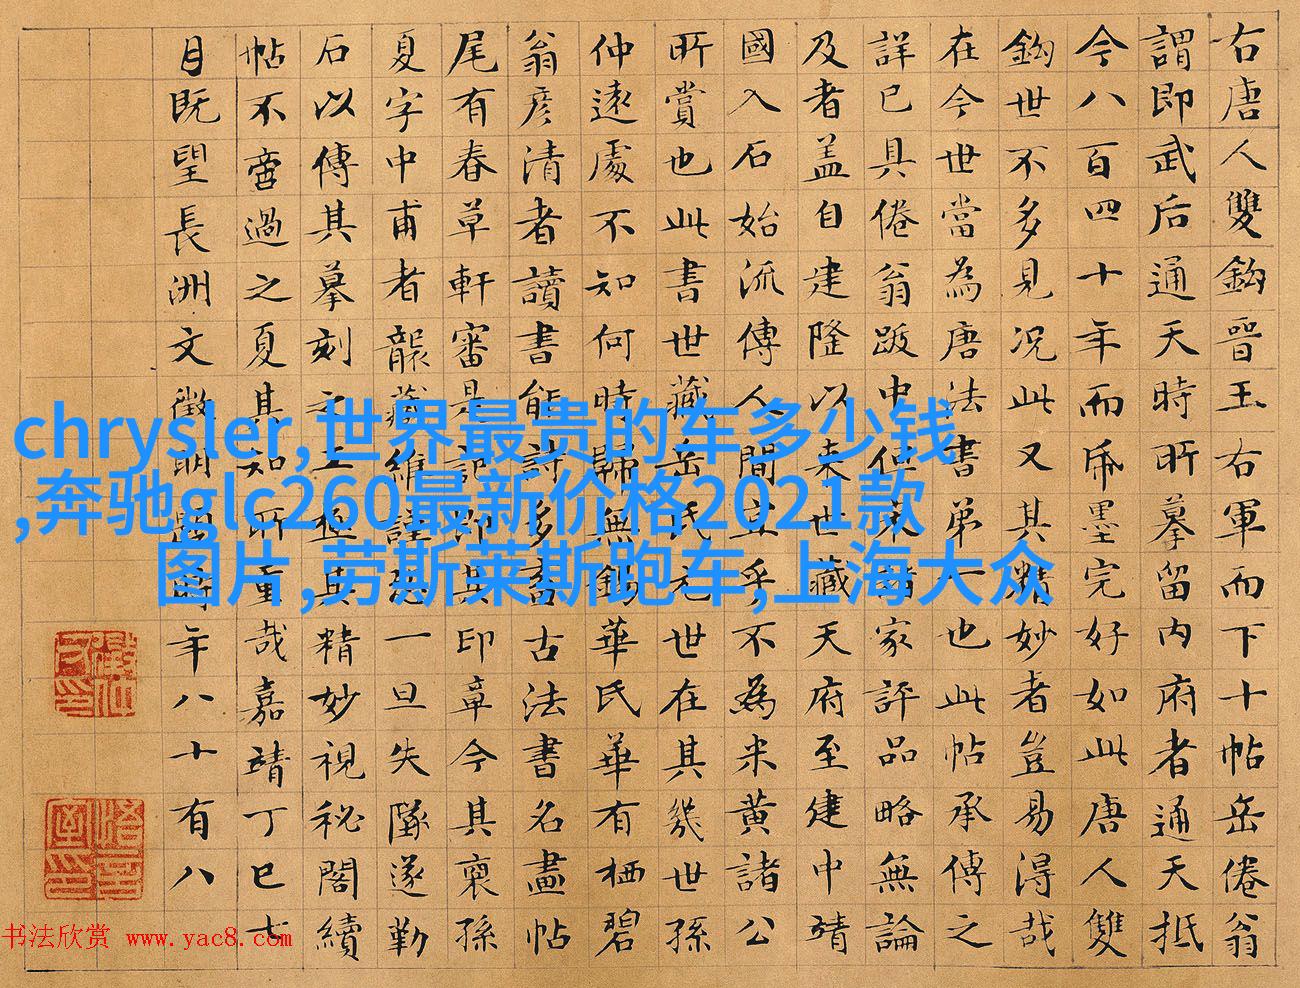 右唐人雙鈎晉王右軍而下十帖岳倦翁
謂即武后通天時所摹留內府者通天抵
今八百四十年而帋墨完好如此唐人雙
鈎世不多見况此又其精妙者豈易得哉
在今世當為唐法書第一也此帖承傳之
詳已具倦翁跋中但家評品略無論
及者盖自建隆以來世藏天府至建中靖
國入石始流傳人間乎不為米黃諸公
所賞也此書世藏岳氏元世在其幾世孫
仲遠處不知何時歸無錫華氏華有栖碧
翁彥清者讀書能詩多畜古法書名畫帖
尾有春草軒審是記即其印章今其裔孫
夏字中甫者襲藏維謹恐一旦失墜遂勒
石以傳其摹刻之工與其精妙視秘閣續
帖不啻過之夏其知所重哉嘉靖丁巳七
月既望長洲文徵明題時年八十有八
chrysler,世界最贵的车多少钱
,奔驰glc260最新价格2021款
图片,劳斯莱斯跑车,上海大众
书法欣赏 www.yac8.com